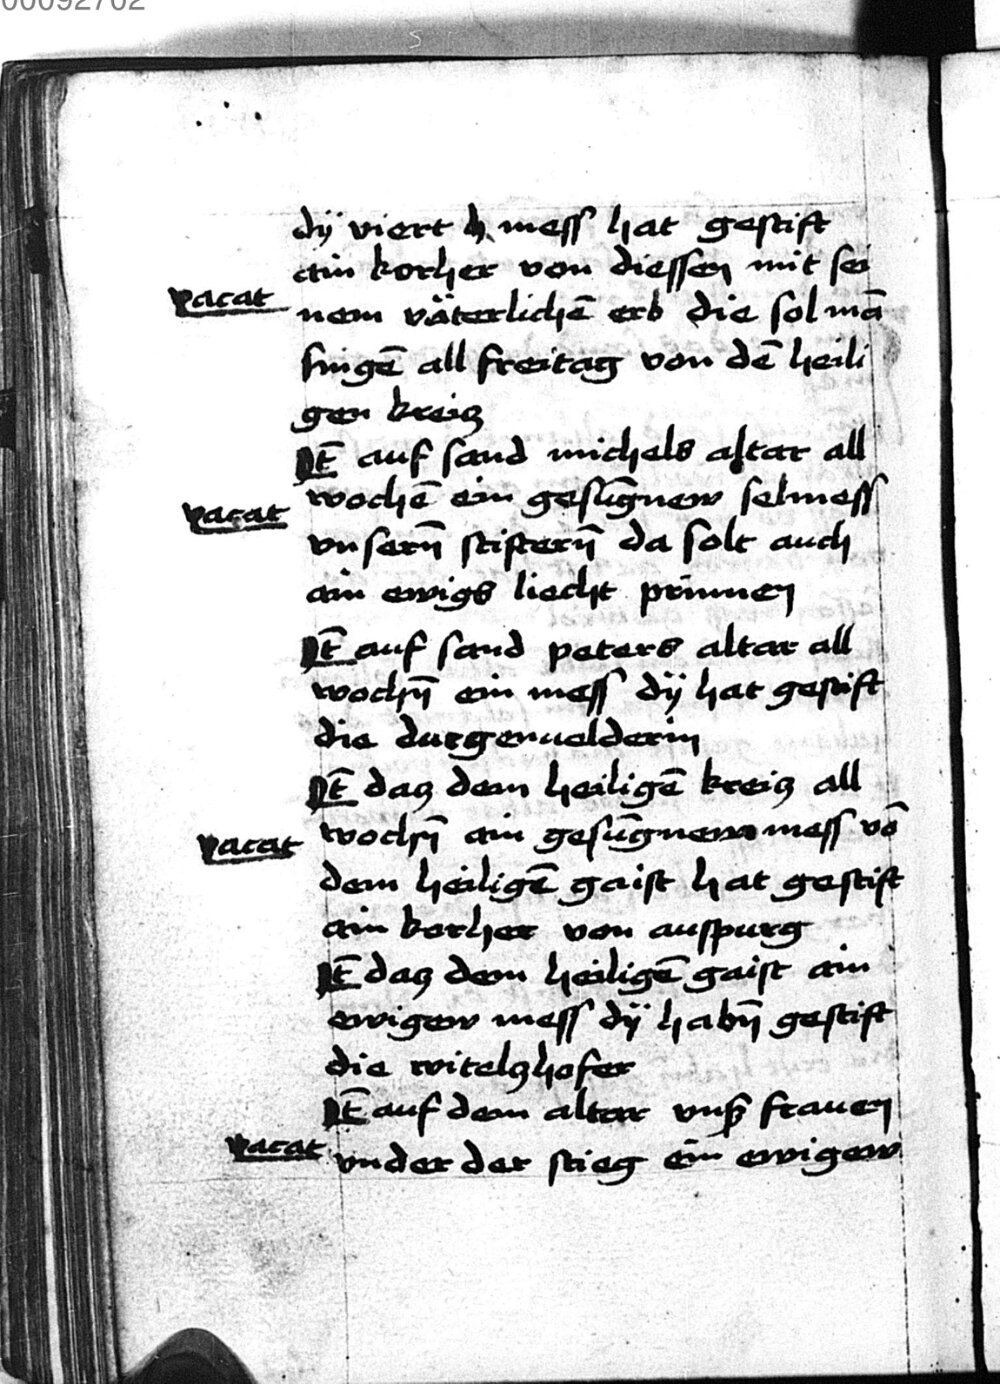 00092702
dÿ viert h mess hat gestift
ain korher von diessen mit sei
vacat
nem väterlichē erb die sol mā
singē all freitag von dē heili
gen kreiz
Jt̄ auf sand michels altar all
wochē ein gesūgnew selmess
vacat
vnserñ stifterñ da solt auch
ain ewigs liecht prinnen
Jt̄ auf sand peters altar all
wochñ ein mess dÿ hat gestift
die durgenuelderin
Jt̄ daz dem heiligē kreiz all
wochñ ain gesūgnew mess vō
vacat
dem heiligē gaist hat gestift
ain korher von auspurg
Jt̄ daz dem heiligē gaist ain
ewigew mess dÿ habñ gestift
die witelzhofer
Jt̄ auf dem altar vnß frauen
vacat
vnder der stieg ein ewigew